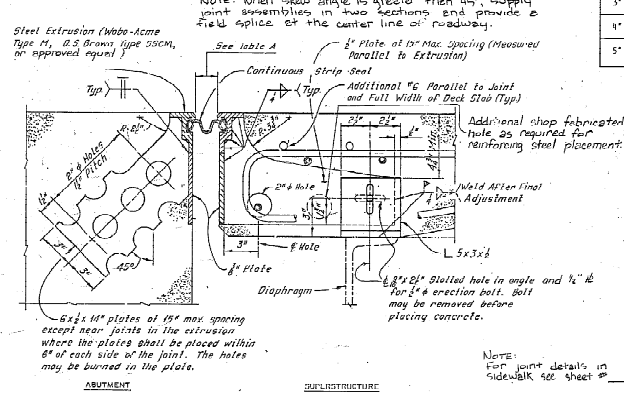 Note: When skew angle is greater then 45°, supply
joint assemblies in two sections and provide a
field splice at the center line of roadway.
3"
4"
5"
Steel Extrusion (Wabo-Acme
Type M, D.S. Brown Type SSCM,
or approved equal)
See Table A
Plate at 15" Max. Spacing (Measured
Parallel to Extrusion)
Continuous Strip Seal
Typ.
Typ.
Additional #6 Parallel to Joint
and Full Width of Deck Slab (Typ.)
Additional shop fabricated
hole as required for
reinforcing steel placement.
2½"
2½"
2" φ Holes
Pitch
2" φ Hole
Min.
Weld After Final
Adjustment
3"
3"
3"
45°
¢ Hole
Plate
L 5x3x
Diaphragm
Slotted hole in angle and
for erection bolt. Bolt
may be removed before
placing concrete.
plates at 15" max. spacing
except near joints in the extrusion
where the plates shall be placed within
6" of each side of the joint. The holes
may be burned in the plate.
NOTE:
For joint details in
sidewalk see sheet #
ABUTMENT
SUPERSTRUCTURE